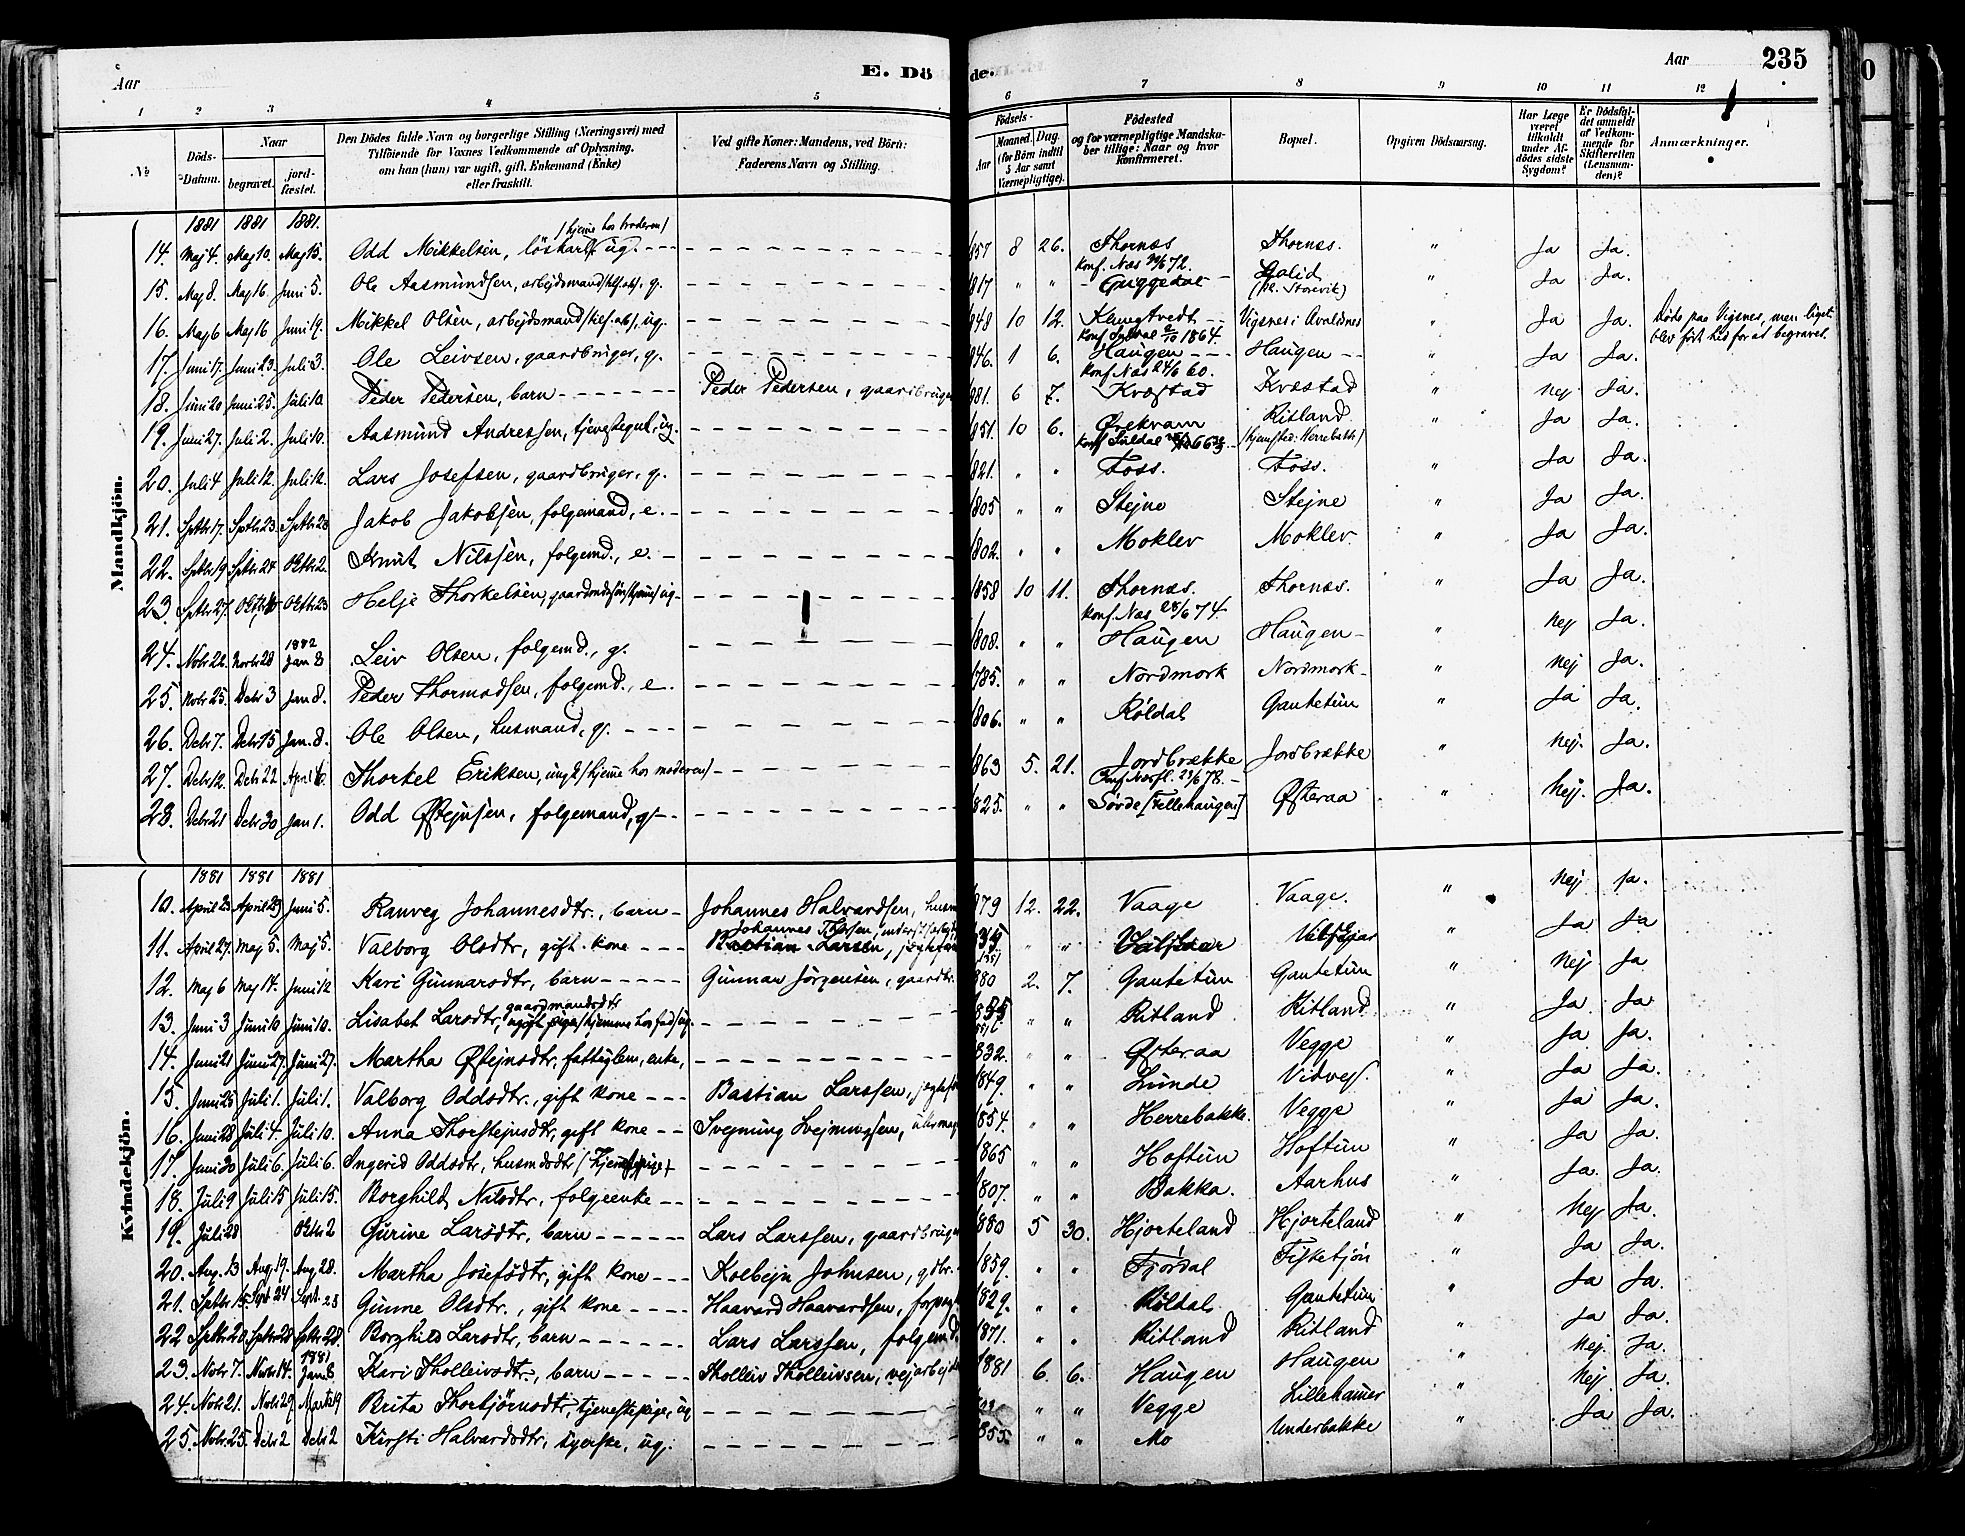 Aar E. Dö de. Aar 235
1 2 3 4 5 6 7 8 9 10 11 12
№ Döds-Datum. Naar begravet. jord-fæstet. Den Dödes fulde Navn og borgerlige Stilling (Næringsvei) med Tilföiende for Voxnes Vedkommende af Oplysning, om han (hun) var ugift, gift, Enkemand (Enke) eller fraskilt. Ved gifte Koner: Mandens, ved Börn: Faderens Navn og Stilling. Födsels- Aar Maaned. Dag. (for Börn indtil 5 Aar samt Værnepligtige). Födested og for værnepligtige Mandskaber tillige: Naar og hvor Konfirmeret. Bopæl. Opgiven Dödsaarsag. Har Læge været tilkaldt under Afdödes sidste Sygdom? Er Dödsfaldet anmeldt af Vedkommende for Skifteretten (Lensmanden)? Anmærkninger.
Mandkjön.
1881 1881 1881.
14. Maj 4. Maj 10. Maj 15. Odd Mikkelsen, löskarl, ug. /hjemme hos broderen/ 1857 8 26. Thornæs Konf. Næs 72. Thornæs. " Ja Ja.
15. Maj 8. Maj 16. Juni 5. Ole Aasmundsen, arbejdsmand, g. 1817 " " Guggedal Lalid (pl. Storvik) " Ja Ja.
16. Maj 6 Maj 16 Juni 19. Mikkel Olsen, arbejdsmand, ug. 1848 10 12. Klungtvedt Konf. Suldal 1864. Vigsnes i Avaldnes Ja Ja. Döde paa Vigsnes, men liget blev fört hid for at begraves.
17. Juni 17. Juni 23. Juli 3. Ole Leivsen, gaardbruger, g. 1846. 1 6. Haugen Konf. Næs 24/6 60. Haugen " Ja Ja.
18. Juni 20 Juni 25. Juli 10. Peder Pedersen, barn Peder Pedersen, gaardbruger 1881. 6 7. Kvæstad Kvæstad " Nej Ja.
19. Juni 27. Juli 2. Juli 10. Aasmund Andressen, tjenestegut, ug. 1851. 10 6. Ørekvam Konf. Suldal Ritland /hjemsted: Herrebakk/ " Ja Ja.
20. Juli 4 Juli 12. Juli 12. Lars Josefsen, gaardbruger, g. 1821. " " Foss. Foss. " Ja Ja.
21. Septbr 17. Septbr 23. Septbr 23 Jakob Jakobsen, folgemand, e. 1805 " " Stejne Stejne " Ja Ja.
22. Septbr 19 Septbr 24 Oktbr 2. Knut Nilssen, folgemd., e. 1802. " " Moklev Moklev " Ja Ja.
23. Septbr 27. Oktbr Oktbr 23 Helje Thorkelsen, gaardmdssön /hjemme/ ug. 1858 10 11. Thornæs. Konf. Næs 28/6 74. Thornæs. " Ja Ja.
24. Novbr 22. Novbr 28 1882 Jan 8 Leiv Olsen, folgemd., g. 1808. " " Haugen Haugen " Nej Ja.
25. Novbr 25. Decbr 3 Jan 8. Peder Thormodsen, folgemd., e. 1785. " " Nordmork Nordmork " Nej Ja.
26. Decbr 7. Decbr 15 Jan. 8. Ole Olsen, husmand, g. 1806. " " Röldal Gautetun " Ja Ja.
27. Decbr 12. Decbr 22 April 10. Thorkel Eriksen, ungk. /hjemme hos moderen/ 1863 5. 21. Jordbrække 78. Jordbrække " Nej. Ja.
28. Decbr 21 Decbr 30 Jan 1. Odd Østejnsen, folgemand, g. 1825. " " Sörde [Fellehaugen] Østeraa " Nej. Ja.
Kvindekjön.
1881 1881 1881
10. April 23 April 29 Juni 5. Ranveg Johannesdtr., barn Johannes Halvardsen, husm 1879 12. 22. Vaage Vaage. " Nej Ja.
11. April 27. Maj 5. Maj 5. Valborg Olsdtr, gift kone Bastian Larsen, Johannes " " " Ja Ja
12. Maj 6 Maj 14. Juni 12 Kari Gunnarsdtr, barn Gunnar Jörgensen, gaardbr. 1880 2. 7. Gautetun Gautetun " Nej Ja
13. Juni 3 Juni 10 Juni 10. Lisabet Larsdtr, gaardmandsdtr 1835 " " Ritland Ritland " Ja Ja
14. Juni 21 Juni 27. Juni 27. Martha Østejnsdtr, fattiglem, enke, 1832. " " Østeraa Vegge " Ja Ja.
15. Juni 25 Juli 1. Juli 1. Valborg Oddsdtr., gift kone Bastian Larssen, 1849. " " Lunde Vidvej. " Ja Ja.
16. Juni 28 Juli 4. Juli 10. Anna Thorstejnsdtr, gift kone Svejnung Svejnungsen, 1854. " " Herrebakke. Vegge " Ja Ja.
17. Juni 30 Juli 6. Juli 6. Ingerid Oddsdtr, husmdsdtr 1865 " " Hoftun Hoftun " Ja Ja.
18. Juli 9 Juli 15 Juli 15. Borghild Nilsdtr, folgeenke 1807. " " Bakka. Aarhus " Ja. Ja.
19. Juli 28 Oktbr 2 Gurine Larsdtr, barn Lars Larssen, gaardbruger 1880 5 30. Hjorteland Hjorteland " Nej Ja.
20. Aug. 13 Aug. 19. Aug. 28. Martha Josefsdtr, gift kone Kolbejn Johnsen, gdbr. 1859. " " Fjordal Fisketjön " Ja Ja.
21. Septbr 15. Sept 24 Sept. 25 Gunne Olsdtr., gift kone Haavard Haavardsen, forpagt. 1829. " " Röldal Gautetun " Ja Ja.
22 Septbr 20. Septbr 28 Septbr 28. Borghild Larsdtr, barn Lars Larssen, folgemd. 1871. " " Ritland Ritland " Ja Ja.
23. Novbr 7. Novbr 14. Jan 8 Kari Tholleivsdtr, barn Tholleiv Tholleivsen, vejarbejder 1881 6. 6. Haugen Haugen " Nej. Ja.
24. Novbr 21. Novbr 29 Marts 19 Brita Thorbjörnsdtr, tjenestepige, ug " " Vegge Lillehamer " Nej. Ja.
25. Novbr. 25. Decbr 2 Decbr 2 Kirsti Halvardsdtr, syerske, ug. 1855. " " Mo Underbakke " Ja Ja.